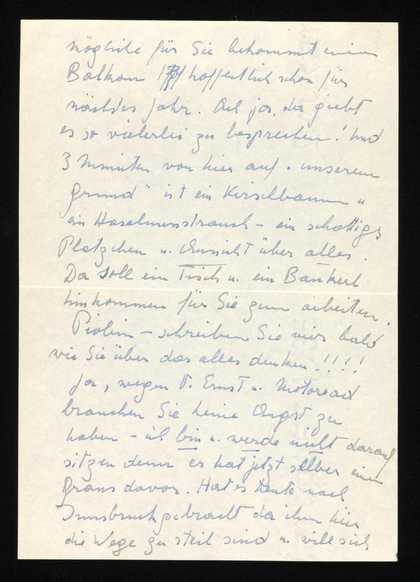 mögliche für Sie bekommt einen
Balkon ! hoffentlich schon für
nächstes Jahr. Ach ja, da giebt
es so vielerlei zu besprechen! Und
3 Minuten von hier auf „unserem
Grund" ist ein Kirschbaum u.
ein Haselnussstrauch – ein schattiges
Plätzchen u. Aussicht über alles.
Da soll ein Tisch u. ein Bankerl
hinkommen für Sie zum arbeiten.
– schreiben Sie mir bald
wie Sie über das alles denken!!!!
Ja, wegen P. Ernst u. Motorrad
brauchen Sie keine Angst zu
haben – ich bin u. werde nicht darauf
sitzen denn er hat jetzt selber einen
Graus davor. Hat es heute nach
Innsbruck gebracht da ihm hier
die Wege zu steil sind u. will sich